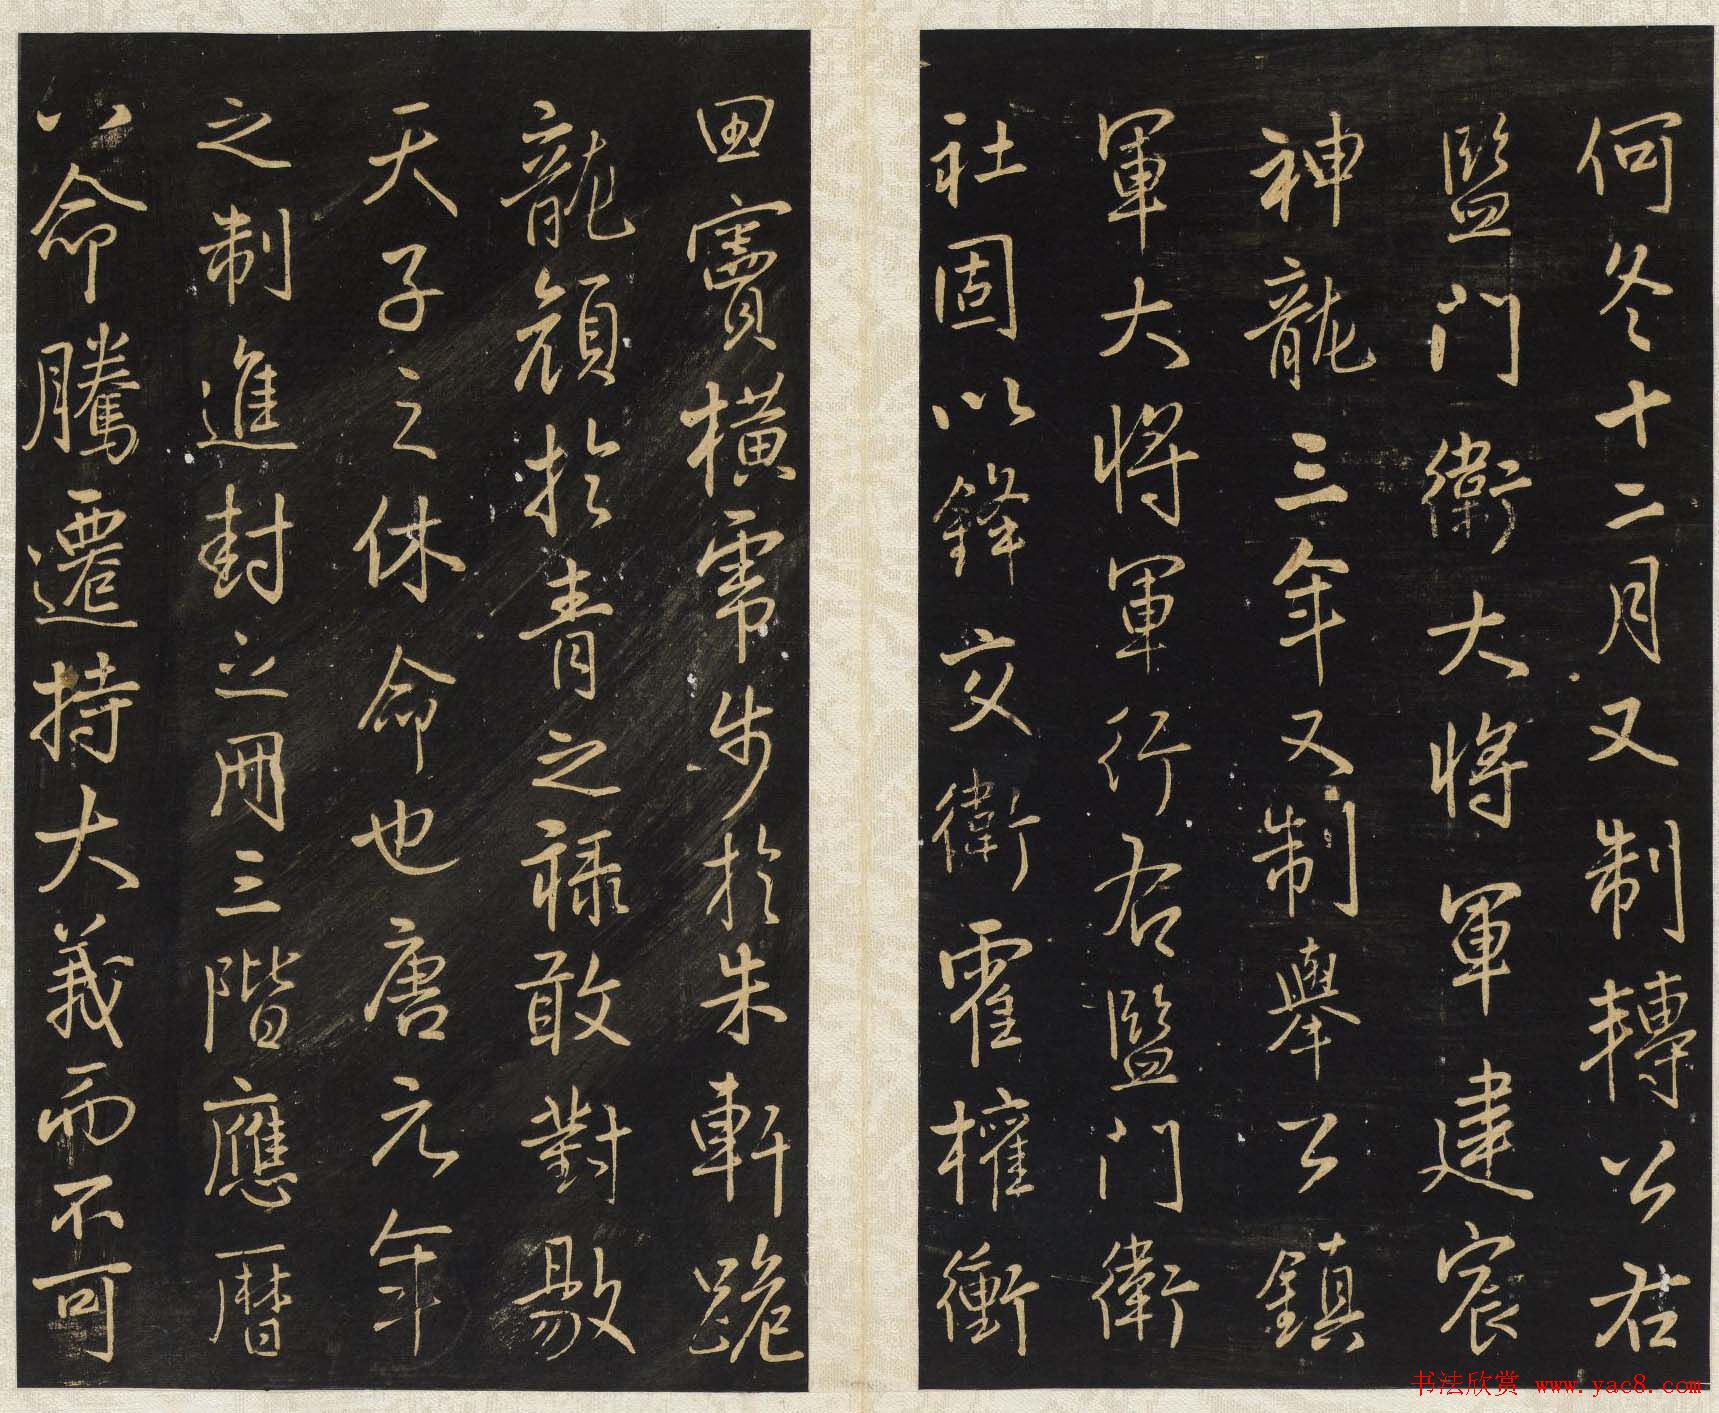 何冬十二月又制轉公右
監門衛大將軍建宸
神龍三年又制舉公鎮
軍大將軍行右監門衛
社固以鋒交衛霍權衡
田竇橫帶步於朱軒跪
龍顏於青之祿敢對敭
天子之休命也唐元年
之制進封之冊三階應曆
以命騰遷持大義而不可
书法欣赏 www.yac8.com